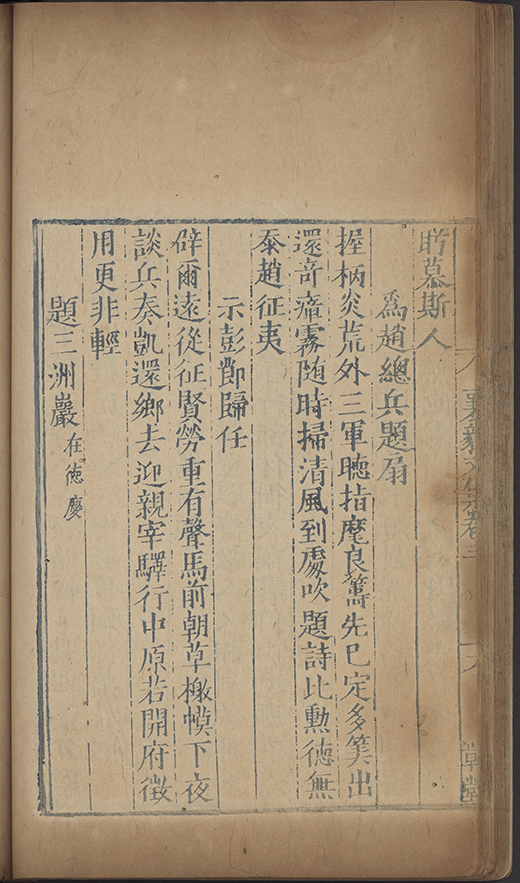 盻慕斯人
爲趙總兵題扇
握柄炎荒外三軍聴指麾良籌先已定多筭出
還竒瘴霧随時掃清風到處吹題詩比勳徳無
忝趙征夷
示彭鄭歸任
辟爾遠從征賢勞重有聲馬前朝草檄幙下夜
談兵奏凱還鄉去迎親宰驛行中原若開府徴
用更非輕
題三洲巖在徳慶
襄毅文集卷三
草堂